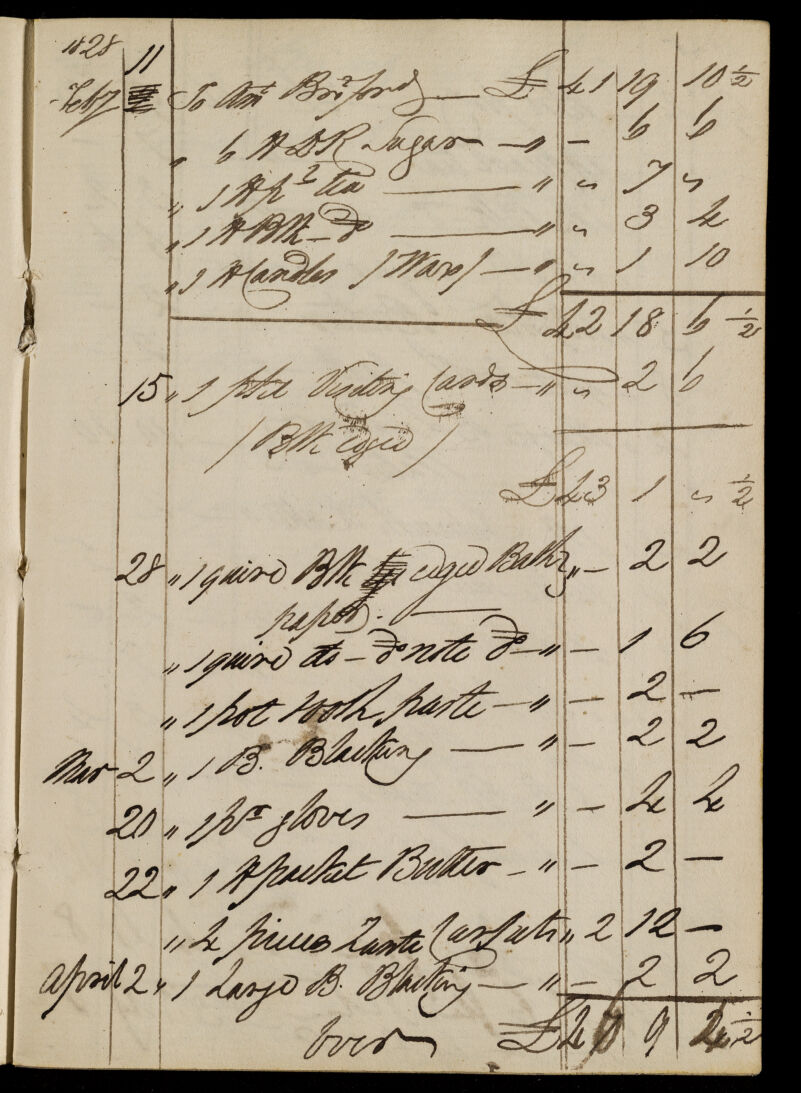 1828
11
Feby To Amt Brt ford — £ 41 19 10 ½
" 6 lb L R Sugar — " — 6 6
" 1 lb Tea — " " 7 "
" 1 lb Blk do — " " 3 4
" 1 lb Candles (Wax) — " " 1 10
£ 42 18 6 ½
15 " 1 pkt Visiting Cards — " " 2 6
(Blk edged)
£ 43 1 " ½
28 " 1 quire Blk edged Bath " — 2 2
paper. —
" 1 quire do — do note do — " — 1 6
" 1 pot tooth paste — " — 2 —
Mar 2 " 1 B. Blacking — " — 2 2
20 " 1 pr gloves — " — 4 4
22 " 1 lb packet Butter — " — 2 —
" 4 pieces Carpet " 2 12 —
April 2 " 1 Large B. Blacking — " — 2 2
Over £ 47 9 4 ½